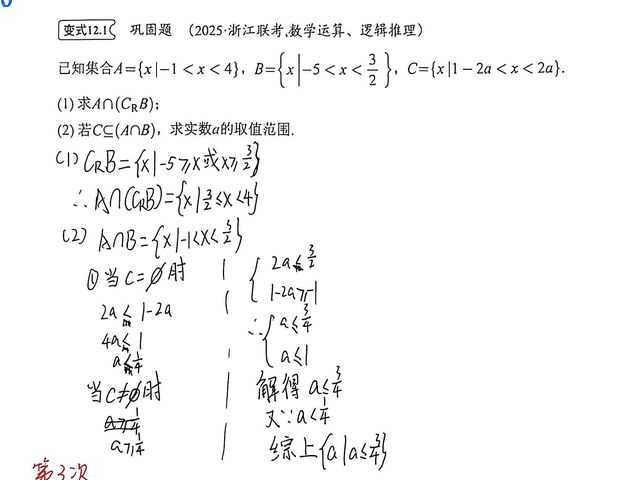 变式12.1 巩固题 (2025·浙江联考,数学运算、逻辑推理)
已知集合A={x|-1<x<4}, B={x|-5<x<3/2}, C={x|1-2a<x<2a}.
(1) 求A∩(C_RB);
(2) 若C⊆(A∩B), 求实数a的取值范围.
(1) C_RB={x|-5≥x或x≥3/2}
∴ A∩(C_RB)={x|3/2≤x<4}
(2) A∩B={x|-1<x<3/2}
①当C=∅时
2a≤1-2a
4a≤1
a≤1/4
当C≠∅时
a≥1/4
a≥1/4
2a≤3/2
1-2a≥-1
∴ a≤3/4
a≤1
解得 a≤3/4
又∵a<1/4
综上{a|a≤3/4}
第3次